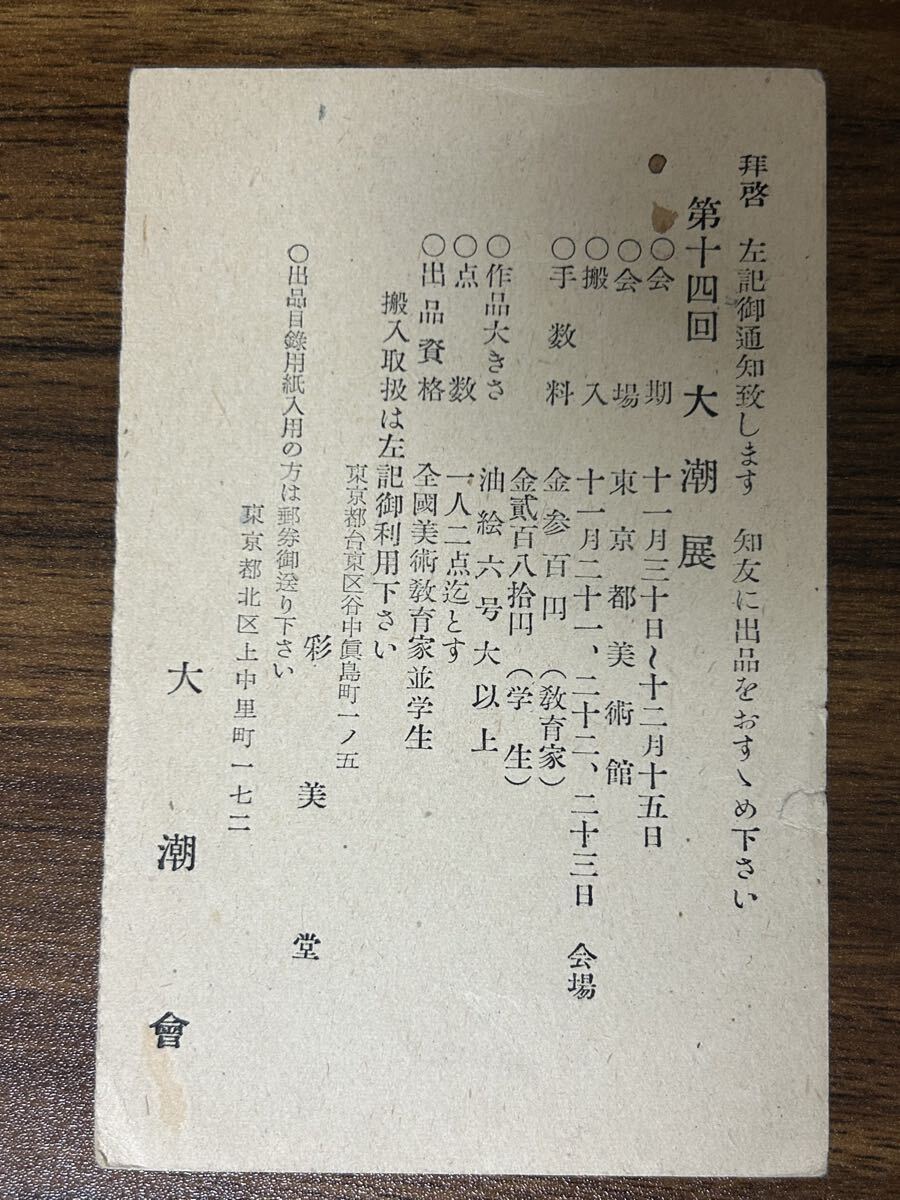 拝啓　左記御通知致します　知友に出品をおすゝめ下さい
第十四回 大潮展
〇会期　十一月三十日〜十二月十五日
〇会場　東京都美術館
〇搬入　十一月二十一、二十二、二十三日　会場
〇手数料　金参百円（教育家）
金貳百八拾円（学生）
〇作品大きさ　油絵六号大以上
〇点数　一人二点迄とす
〇出品資格　全國美術教育家並学生
搬入取扱は左記御利用下さい
東京都台東区谷中眞島町一ノ五
彩美堂
〇出品目錄用紙入用の方は郵券御送り下さい
東京都北区上中里町一七二
大潮會